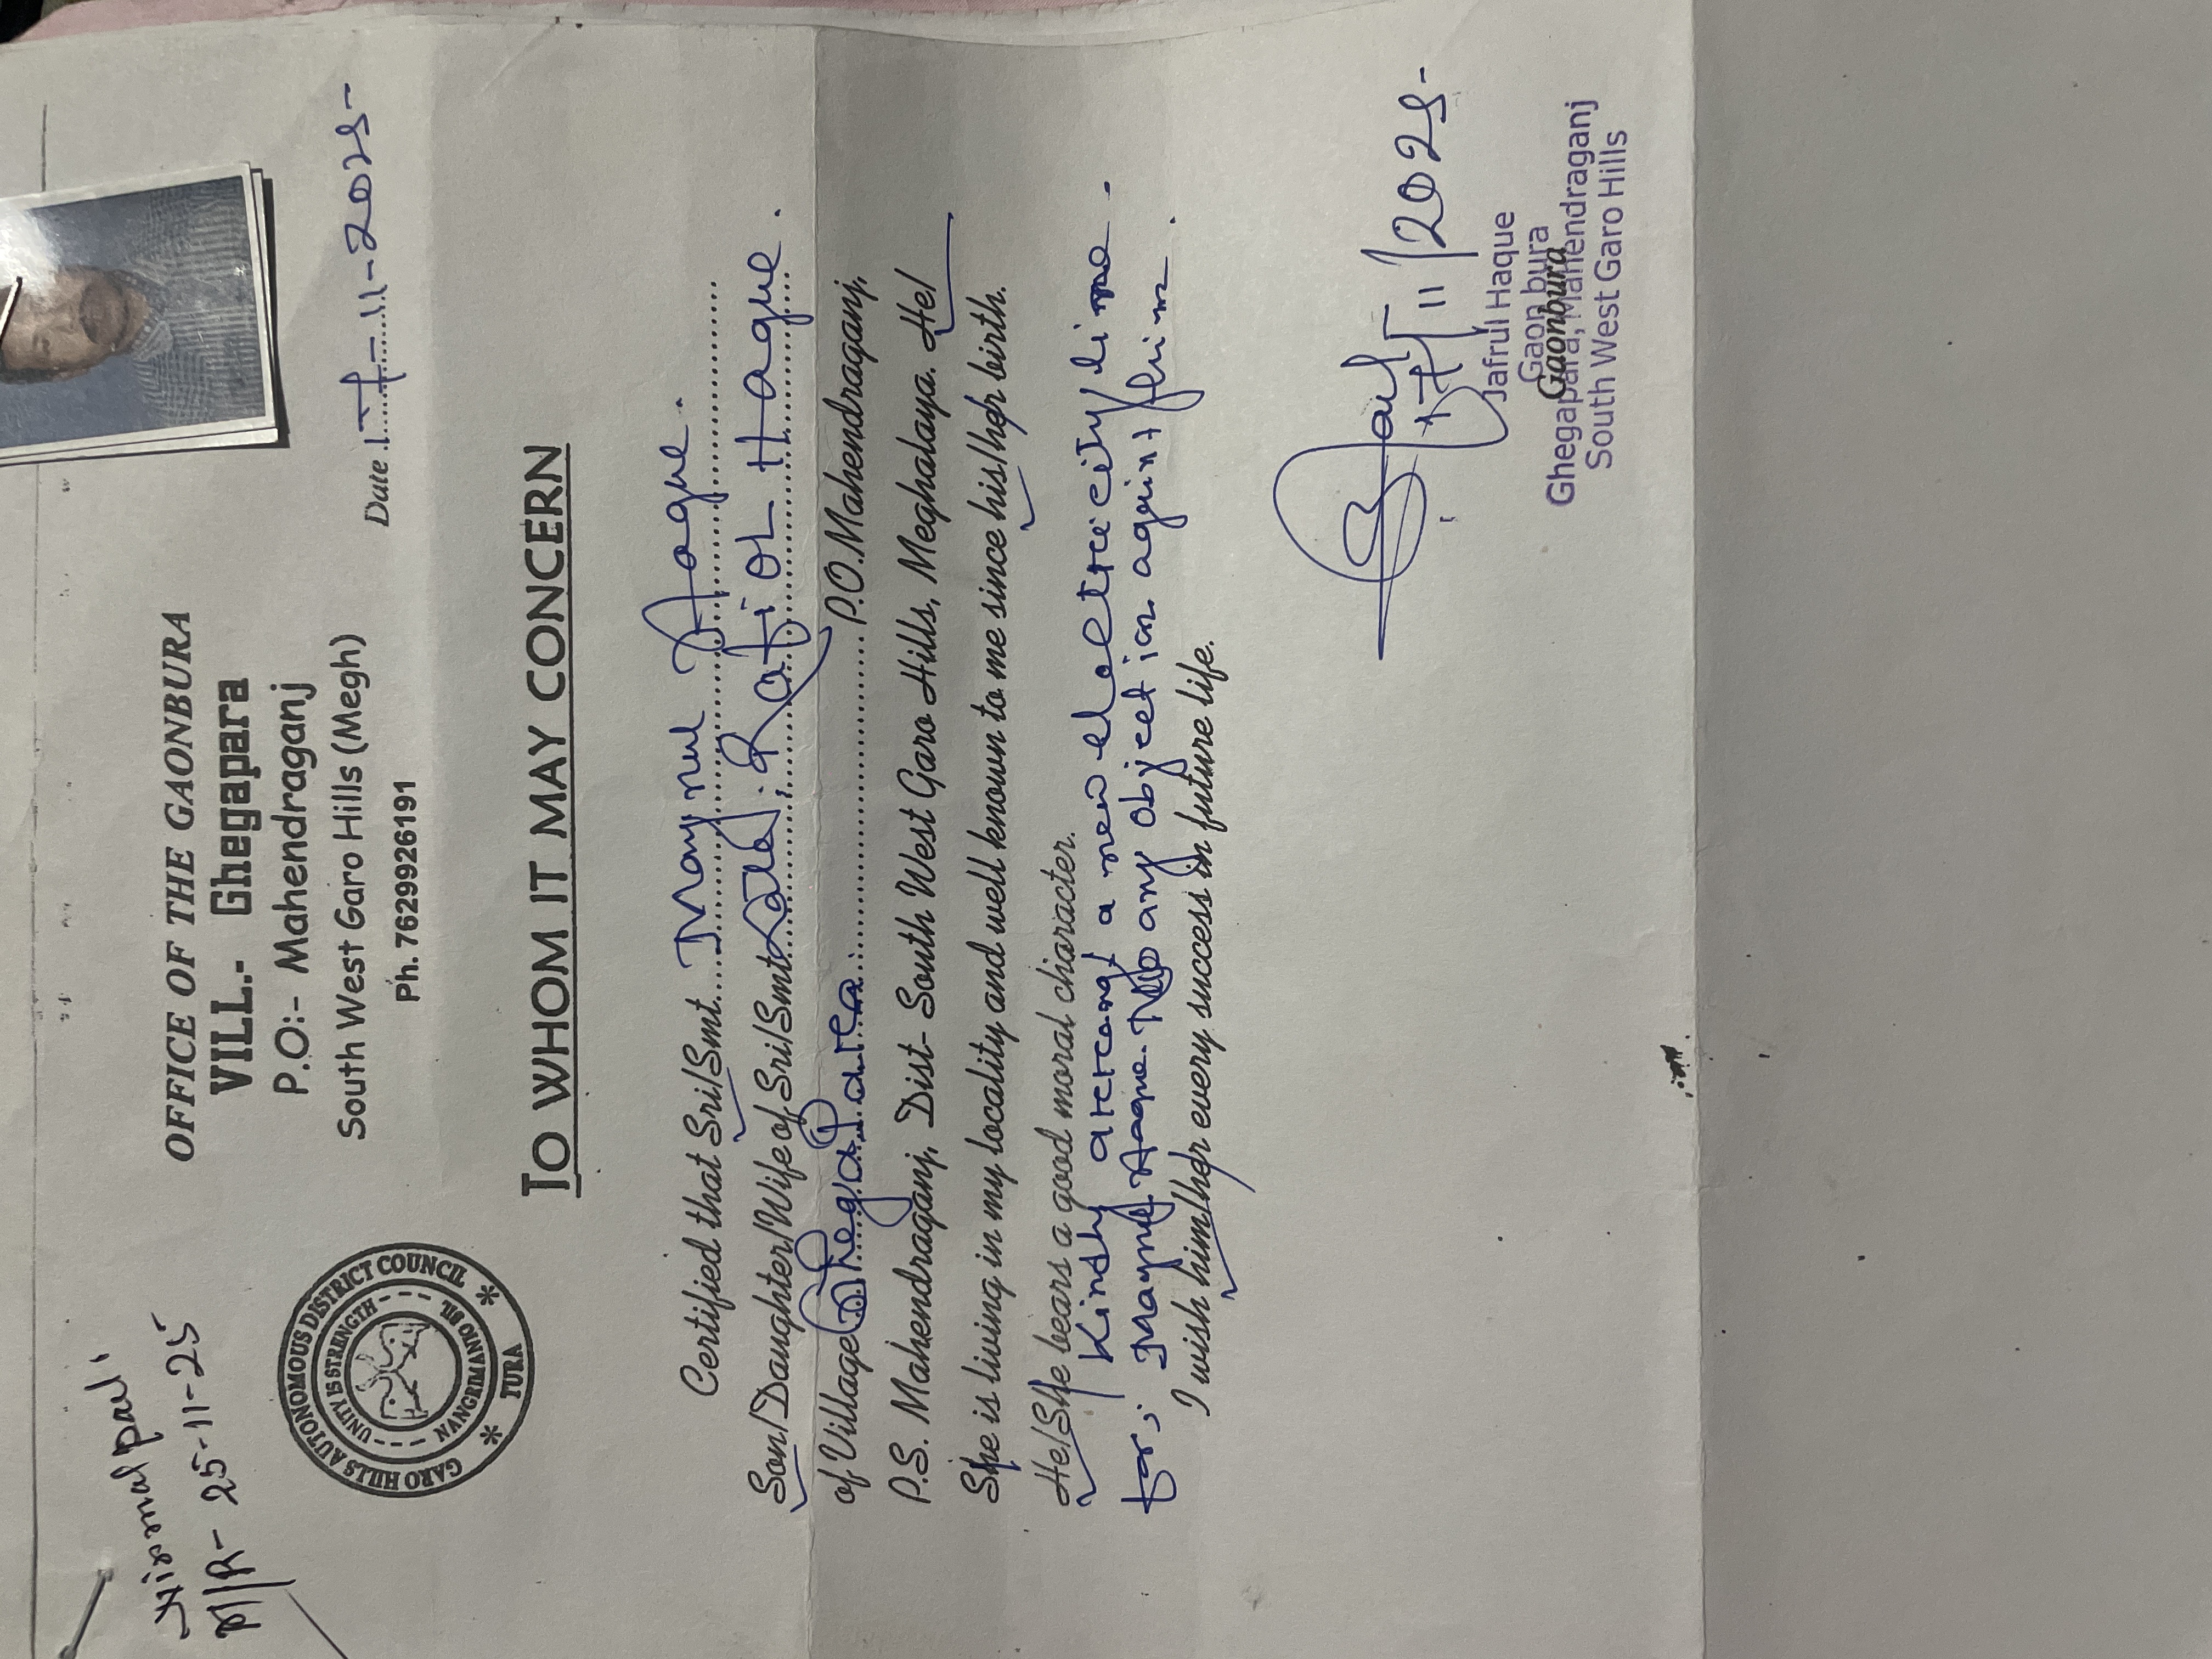 Nirmal Pal
M/R - 25-11-25
GARO HILLS AUTONOMOUS DISTRICT COUNCIL
UNITY IS STRENGTH
TURA
OFFICE OF THE GAONBURA
VILL.- Ghegapara
P.O:- Mahendraganj
South West Garo Hills (Megh)
Ph. 7629926191
Date 17-11-2025-
TO WHOM IT MAY CONCERN
Certified that Sri/Smt. Maynul Haque.
Son/Daughter/Wife of Sri/Smt Late. Rafiol Haque.
of Village Ghegapara. P.O.Mahendraganj,
P.S. Mahendraganj, Dist- South West Garo Hills, Meghalaya. He/
She is living in my locality and well known to me since his/her birth.
He/She bears a good moral character.
Kindly arrang a new electrecity line.
for, Maynul Haque. No any objection against him.
I wish him/her every success in future life.
17/11/2025-
Jafrul Haque
Gaon bura
Gaonbura
Ghegapara, Mahendraganj
South West Garo Hills